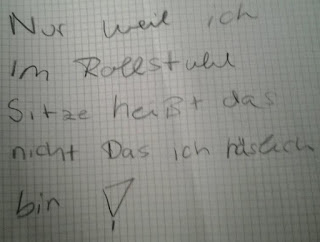 Nur weil ich
Im Rollstuhl
Sitze heißt das
nicht Das ich häslich
bin !